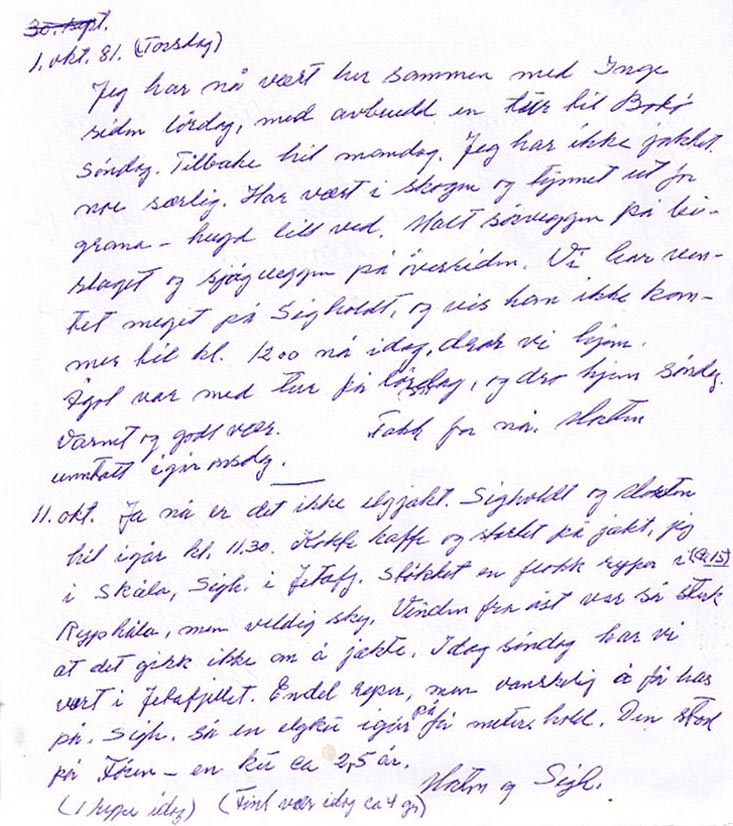 30. sept.
1. okt. 81. (Torsdag)
Jeg har nå vært her sammen med Inge
siden lördag, med avbrudd en tur til
söndag. Tilbake hit mandag. Jeg har ikke jaktet
noe særlig. Har vært i skogen og tynnet ut for
grana – hugd litt ved. Malt sörveggen på
slaget og sjåveggen på översiden. Vi har ven-
tet meget på Sigholdt, og vis han ikke kom-
mer hit kl. 12.00 nå idag, drar vi hjem.
var med tur på lördag, og dro hjem söndag.
Varmt og godt vær. Takk for nå.
unntatt igår onsdag.
11. okt. Ja nå er det ikke elgjakt. Sigholdt og
hit igår kl. 11.30. Kokte kaffe og startet på jakt, jeg
i Skåla, Sigh. i Jetafj. Stökket en flokk ryper i (9,15)
Rypskåla, men veldig sky. Vinden fra öst var så sterk
at det gikk ikke an å jakte. Idag söndag har vi
vært i Jetafjellet. Endel ryper, men vanskelig å få has
på. Sigh. så en elgku igår på få meters hold. Den stod
på – en ku ca 2,5 år.
og Sigh.
(1 rype idag) (Fint vær idag ca 4 gr)